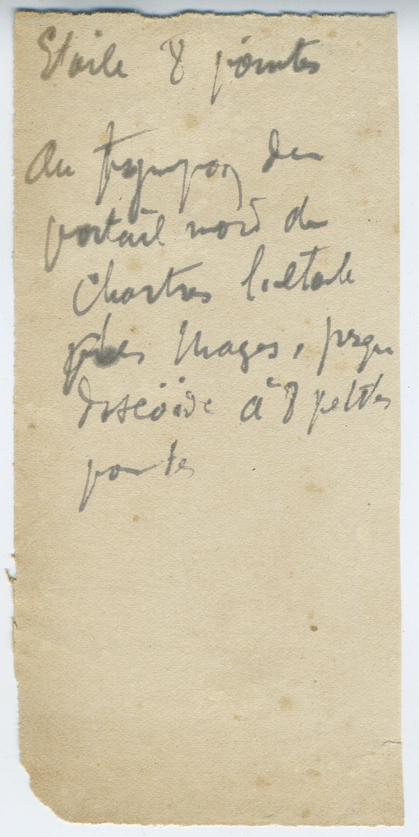 Etoile 8 pointes
Au tympan du
portail nord de
Chartres l'etoile
des Mages, presque
discoïde à 8 petites
pointes